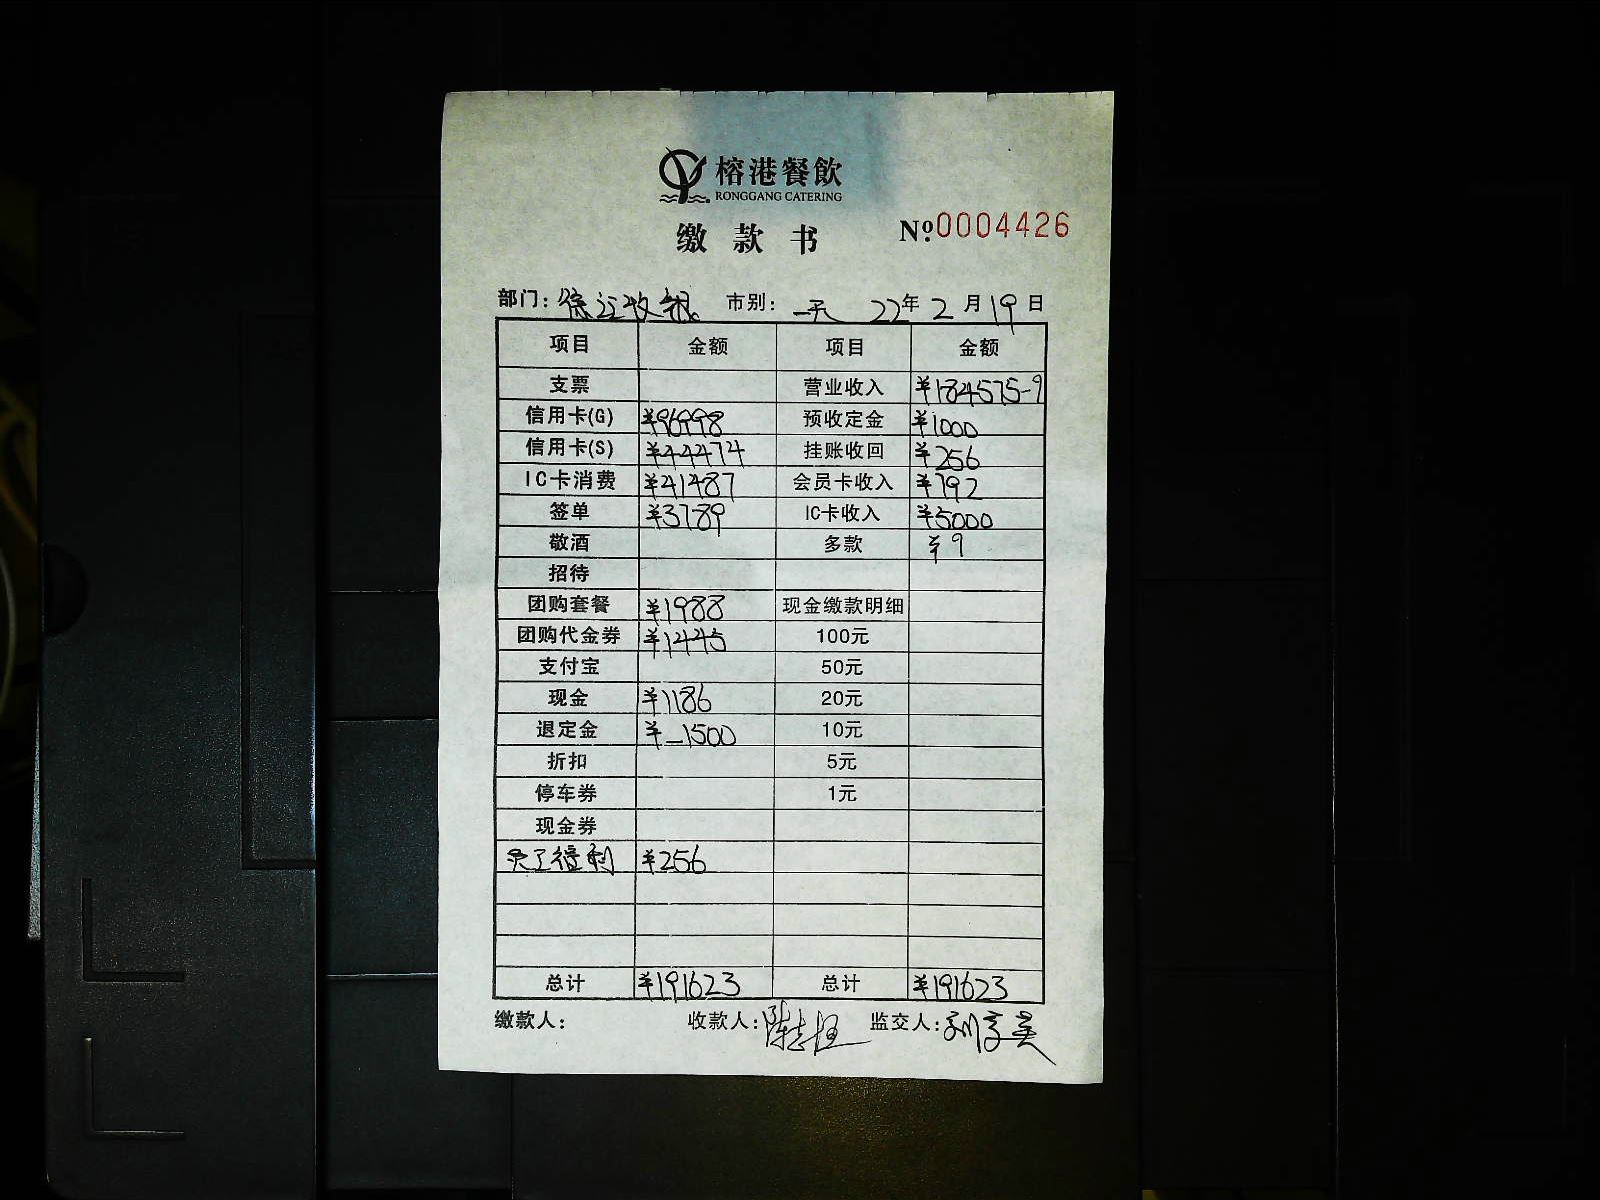 榕港餐飲
RONGGANG CATERING
缴款书 Nº.0004426
部门: 收银 市别: 22年2月19日
项目 金额 项目 金额
支票 营业收入 ¥184575-9
信用卡(G) ¥96998 预收定金 ¥1000
信用卡(S) ¥44474 挂账收回 ¥256
IC卡消费 ¥41487 会员卡收入 ¥792
签单 ¥3789 IC卡收入 ¥5000
敬酒 多款 ¥9
招待
团购套餐 ¥1988 现金缴款明细
团购代金券 ¥1445 100元
支付宝 50元
现金 ¥1186 20元
退定金 ¥-1500 10元
折扣 5元
停车券 1元
现金券
员工福利 ¥256
总计 ¥191623 总计 ¥191623
缴款人: 收款人: 监交人: